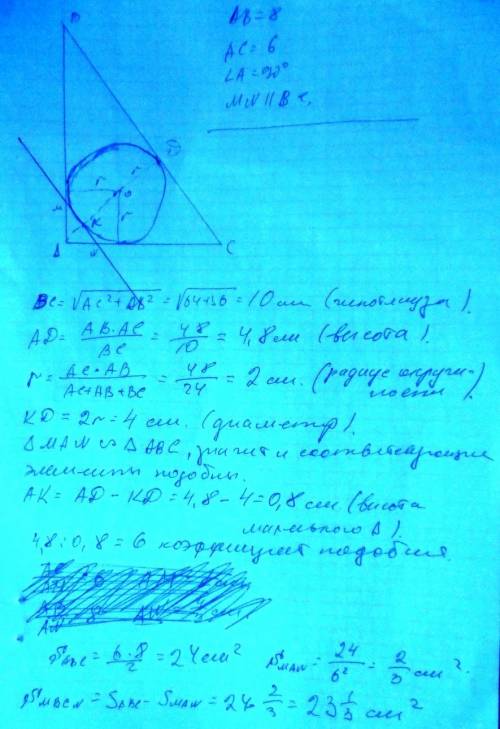 AB = 8
AC = 6
∠A = 90°
MN || BC.
B
D
r
r
O
r
M
K
A
N
C
BC = √(AC² + AB²) = √(64+36) = 10 см (гипотенуза).
AD = (AB · AC)/BC = 48/10 = 4,8 см (высота).
r = (AC · AB)/(AC+AB+BC) = 48/24 = 2 см. (радиус окружности).
KD = 2r = 4 см. (диаметр).
Δ MAN ∾ Δ ABC, значит и соответствующие
элементы подобны.
AK = AD − KD = 4,8 − 4 = 0,8 см (высота
маленького Δ).
4,8 : 0,8 = 6 коэффициент подобия.
S ABC = (6 · 8)/2 = 24 см²
S MAN = 24/6² = 2/3 см².
S MBCN = S ABC − S MAN = 24 - 2/3 = 23 1/3 см²